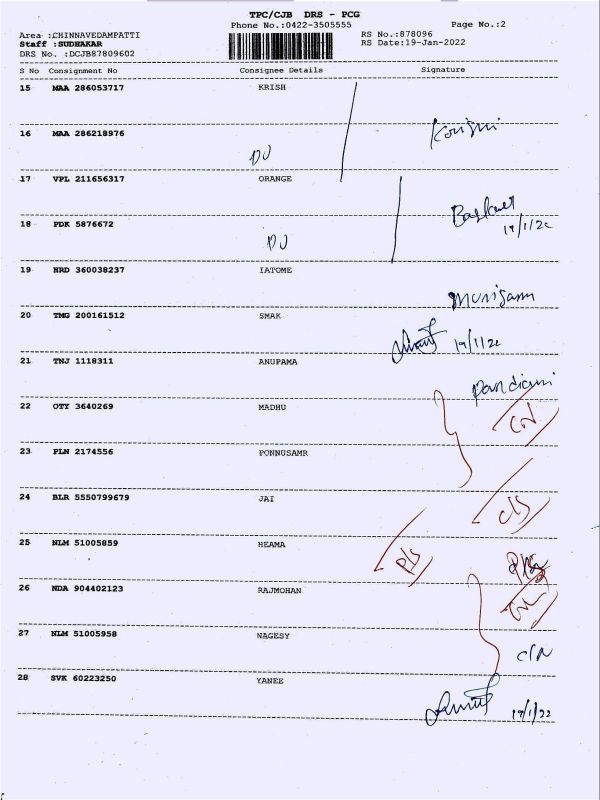 TPC/CJB DRS - PCG
Phone No.:0422-3505555 Page No.:2
Area :CHINNAVEDAMPATTI RS No.:878096
Staff :SUDHAKAR RS Date:19-Jan-2022
DRS No. :DCJB87809602
S No Consignment No Consignee Details Signature
15 MAA 286053717 KRISH
16 MAA 286218976
17 VPL 211656317 ORANGE
18 PDK 5876672
19/1/22
19 HRD 360038237 IATOME
Munisamy
20 TMG 200161512 SMAK
19/1/22
21 TNJ 1118311 ANUPAMA
22 OTY 3640269 MADHU
23 PLN 2174556 PONNUSAMR
24 BLR 5550799679 JAI
25 NLM 51005859 HEAMA
26 NDA 904402123 RAJMOHAN
27 NLM 51005958 NAGESY
28 SVK 60223250 YANEE
19/1/22